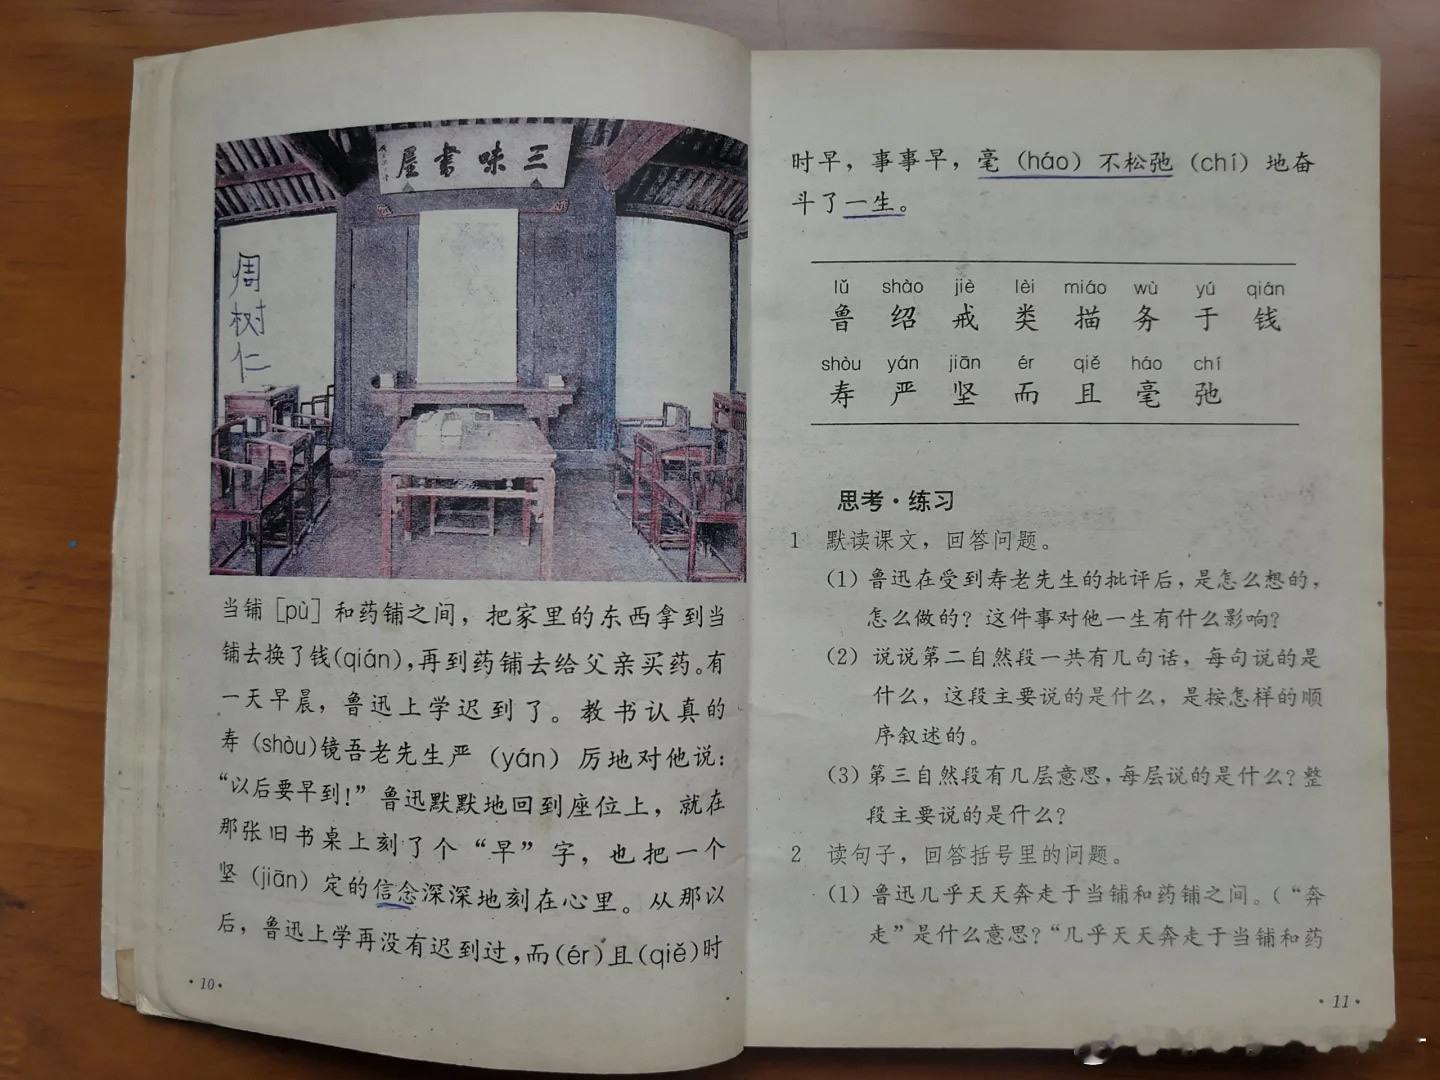 三味書屋
周
树
仁
当铺［pù］和药铺之间，把家里的东西拿到当
铺去换了钱(qián)，再到药铺去给父亲买药。有
一天早晨，鲁迅上学迟到了。教书认真的
寿（shòu)镜吾老先生严（yán）厉地对他说：
“以后要早到！”鲁迅默默地回到座位上，就在
那张旧书桌上刻了个“早”字，也把一个
坚（jiān）定的信念深深地刻在心里。从那以
后，鲁迅上学再没有迟到过，而(ér)且(qiě)时
·10·
时早，事事早，毫（háo）不松弛（chí）地奋
斗了一生。
lǔ shào jiè lèi miáo wù yú qián
鲁 绍 戒 类 描 务 于 钱
shòu yán jiān ér qiě háo chí
寿 严 坚 而 且 毫 弛
思考·练习
1 默读课文，回答问题。
（1）鲁迅在受到寿老先生的批评后，是怎么想的，
怎么做的？这件事对他一生有什么影响？
（2）说说第二自然段一共有几句话，每句说的是
什么，这段主要说的是什么，是按怎样的顺
序叙述的。
（3）第三自然段有几层意思，每层说的是什么？整
段主要说的是什么？
2 读句子，回答括号里的问题。
（1）鲁迅几乎天天奔走于当铺和药铺之间。（“奔
走”是什么意思？“几乎天天奔走于当铺和药
·11·